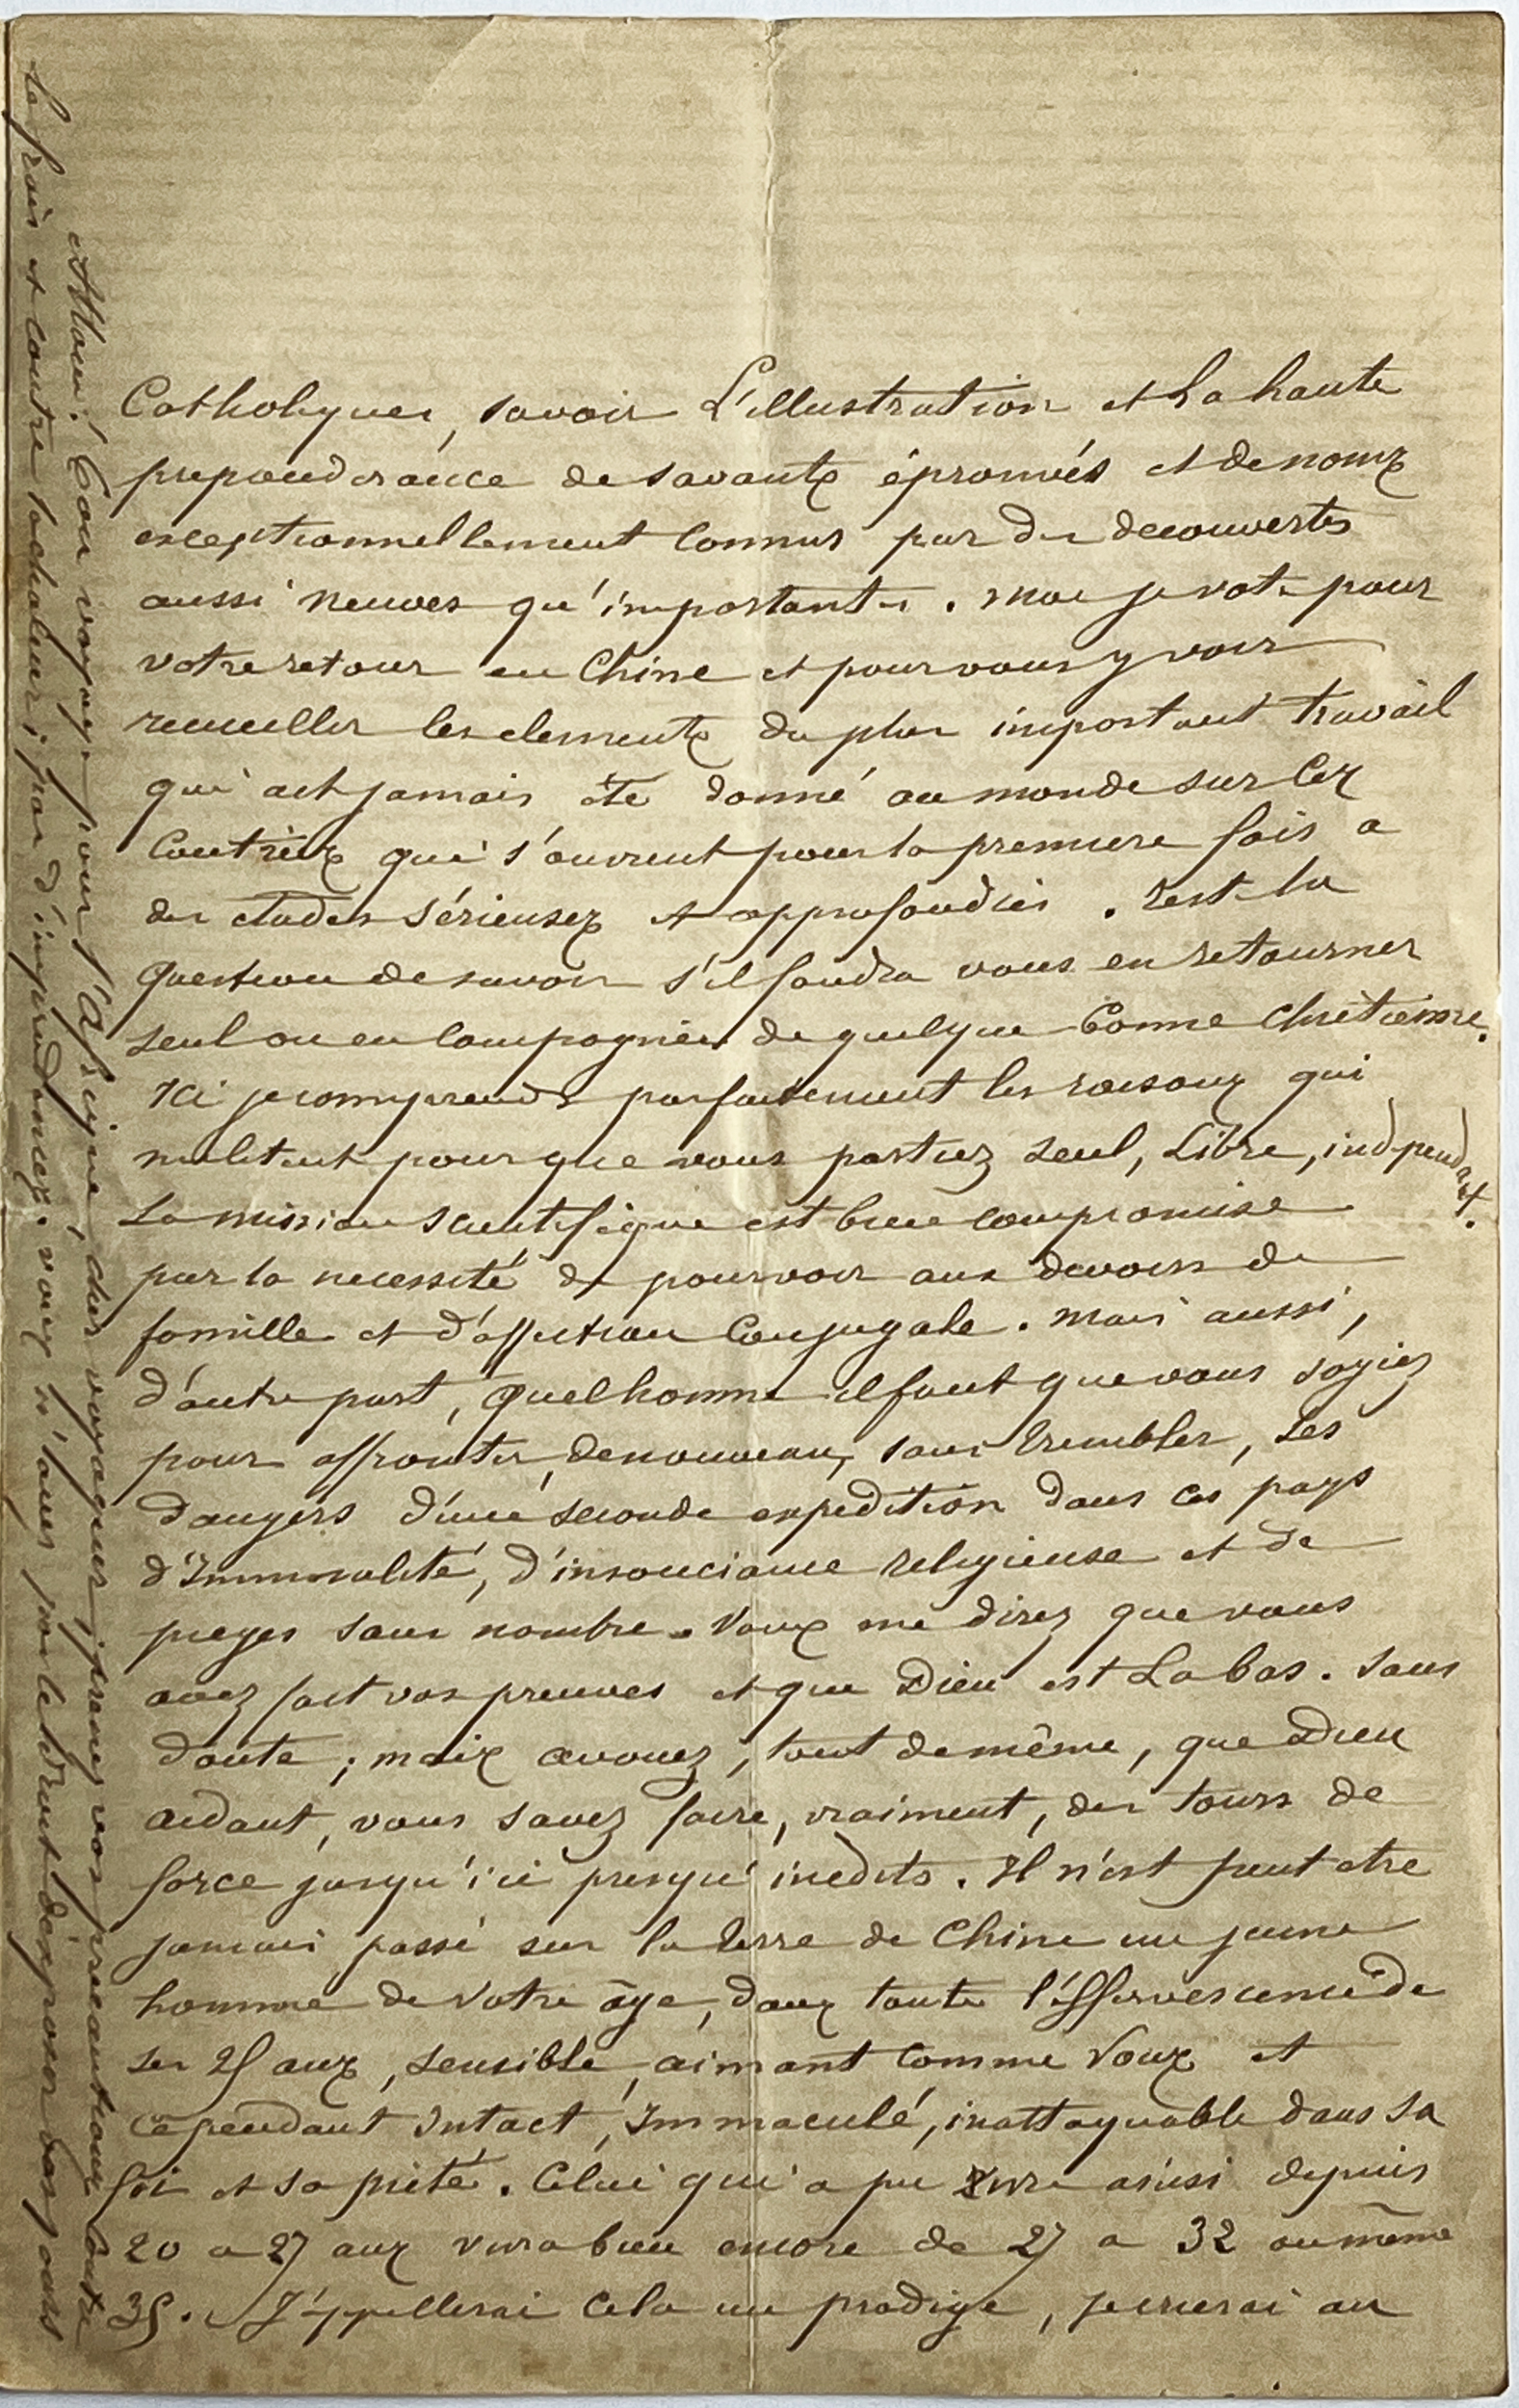 Catholiques, savoir L'illustration et La haute
preponderance de savants éprouvés et de noms
exceptionnellement connus par des decouvertes
aussi neuves qu'importantes. Moi je vote pour
votre retour en Chine et pour vous y voir
recueillir les elements du plus important travail
qui ait jamais été donné au monde sur Ces
Contrées qui s'ouvrent pour la premiere fois a
des etudes sérieuses et approfondies. Reste la
question de savoir s'il faudra vous en retourner
seul ou en Compagnie de quelque bonne chrétienne.
Ici je comprends parfaitement les raisons qui
militent pour que vous partiez seul, Libre, indpendant.
La mission scientifique est bien compromise
par la necessité de pourvoir aux devoirs de
famille et d'affection Conjugale. Mais aussi,
d'autre part, quel homme il faut que vous soyiez
pour affronter, de nouveau, sans trembler, Les
Dangers d'une seconde expedition dans ces pays
d'Immoralité, d'insouciance religieuse et de
pieges sans nombre. Vous me direz que vous
avez fait vos preuves et que Dieu est La bas. Sans
doute; mais avouez, tout de même, que Dieu
aidant, vous savez faire, vraiment, des tours de
force jusqu'ici presqu' inédits. Il n'est peut etre
jamais passé sur la terre de Chine un jeune
homme de Votre âge, dans toute l'éffervescence de
ses 25 ans, sensible, aimant comme Vous et
cependant Intact, Immaculé, inattaquable dans sa
foi et sa piété. Celui qui a pu vivre ainsi depuis
20 a 27 ans vivra bien encore de 27 a 32 ou même
35. J'appellerai Cela un prodige, je crierai au
Allons! bon voyage pour l'Afrique, cher voyageur; prenez vos precautions contre
le frais et contre la chaleur; pas d'imprudences. vous n'avez pas le droit d'exposer vos jours